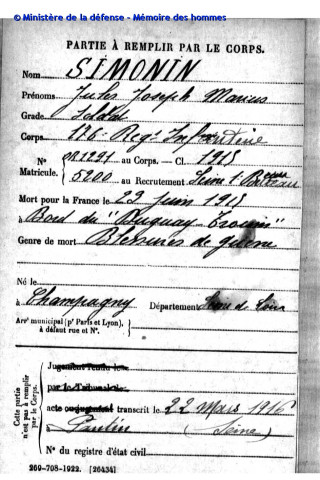 © Ministère de la défense - Mémoire des hommes
PARTIE À REMPLIR PAR LE CORPS.
Nom SIMONIN
Prénoms Jules Joseph Marius
Grade Soldat
Corps 176e Regt Infanterie
N° au Corps. — Cl. 1915
Matricule. 5200 au Recrutement Seine 1er Bureau
Mort pour la France le 29 Juin 1915
à Bord du "Duguay Trouin"
Genre de mort Blessures de guerre
Né le
à Champagny Département
Arrt municipal (pr Paris et Lyon),
à défaut rue et N°.
Cette partie
n'est pas à remplir
par le Corps.
Jugement rendu le
par le Tribunal
acte ou jugement transcrit le 22 Mars 1916
à Pantin (Seine)
N° du registre d'état civil
269-708-1922. [26434]